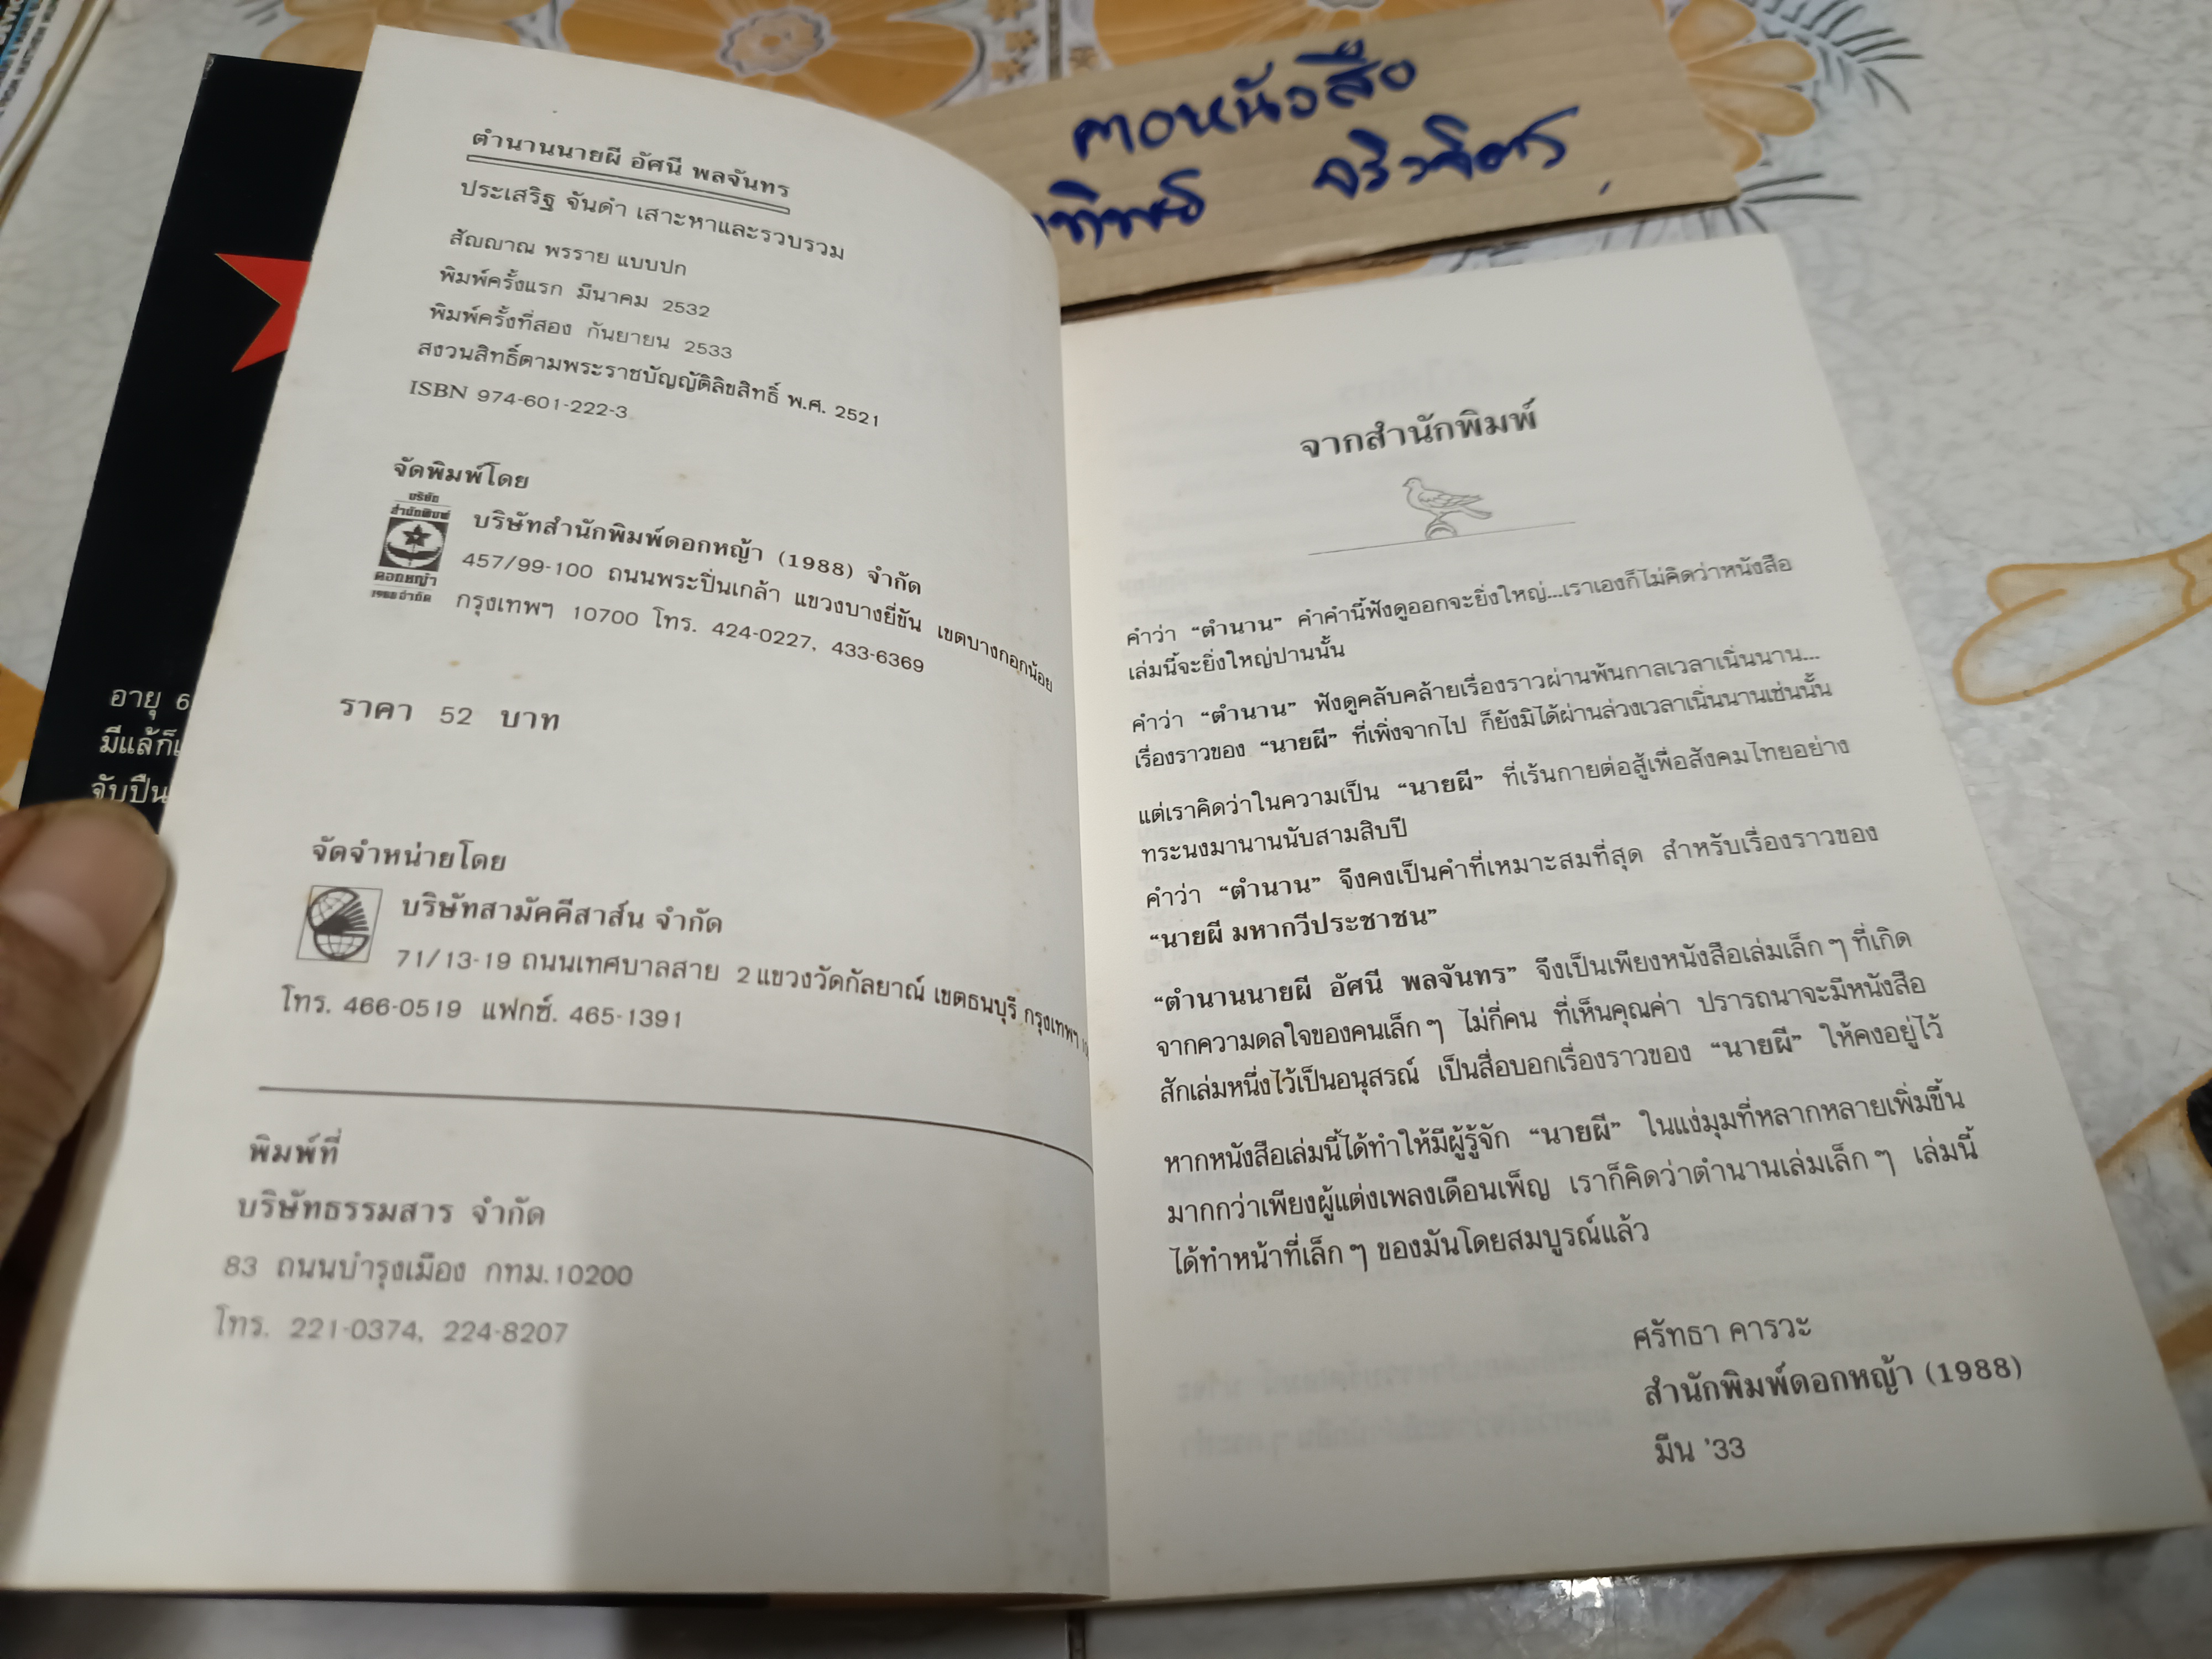 คอหนังสือ
ตำนานนายผี อัศนี พลจันทร
ประเสริฐ จันดำ เสาะหาและรวบรวม
สัญญาณ พรราย แบบปก
พิมพ์ครั้งแรก มีนาคม 2532
พิมพ์ครั้งที่สอง กันยายน 2533
สงวนสิทธิ์ตามพระราชบัญญัติลิขสิทธิ์ พ.ศ. 2521
ISBN 974-601-222-3
จัดพิมพ์โดย
บริษัท
สำนักพิมพ์
ดอกหญ้า
1988 จำกัด
บริษัทสำนักพิมพ์ดอกหญ้า (1988) จำกัด
457/99-100 ถนนพระปิ่นเกล้า แขวงบางยี่ขัน เขตบางกอกน้อย
กรุงเทพฯ 10700 โทร. 424-0227, 433-6369
ราคา 52 บาท
จัดจำหน่ายโดย
บริษัทสามัคคีสาส์น จำกัด
71/13-19 ถนนเทศบาลสาย 2 แขวงวัดกัลยาณ์ เขตธนบุรี กรุงเทพฯ
โทร. 466-0519 แฟกซ์. 465-1391
พิมพ์ที่
บริษัทธรรมสาร จำกัด
83 ถนนบำรุงเมือง กทม.10200
โทร. 221-0374, 224-8207
อายุ 6
มีแล้ก็
จับปืน
จากสำนักพิมพ์
คำว่า “ตำนาน” คำคำนี้ฟังดูออกจะยิ่งใหญ่...เราเองก็ไม่คิดว่าหนังสือ
เล่มนี้จะยิ่งใหญ่ปานนั้น
คำว่า “ตำนาน” ฟังดูคลับคล้ายเรื่องราวผ่านพ้นกาลเวลาเนิ่นนาน...
เรื่องราวของ “นายผี” ที่เพิ่งจากไป ก็ยังมิได้ผ่านล่วงเวลาเนิ่นนานเช่นนั้น
แต่เราคิดว่าในความเป็น “นายผี” ที่เร้นกายต่อสู้เพื่อสังคมไทยอย่าง
ทระนงมานานนับสามสิบปี
คำว่า “ตำนาน” จึงคงเป็นคำที่เหมาะสมที่สุด สำหรับเรื่องราวของ
“นายผี มหากวีประชาชน”
“ตำนานนายผี อัศนี พลจันทร” จึงเป็นเพียงหนังสือเล่มเล็ก ๆ ที่เกิด
จากความดลใจของคนเล็ก ๆ ไม่กี่คน ที่เห็นคุณค่า ปรารถนาจะมีหนังสือ
สักเล่มหนึ่งไว้เป็นอนุสรณ์ เป็นสื่อบอกเรื่องราวของ “นายผี” ให้คงอยู่ไว้
หากหนังสือเล่มนี้ได้ทำให้มีผู้รู้จัก “นายผี” ในแง่มุมที่หลากหลายเพิ่มขึ้น
มากกว่าเพียงผู้แต่งเพลงเดือนเพ็ญ เราก็คิดว่าตำนานเล่มเล็ก ๆ เล่มนี้
ได้ทำหน้าที่เล็ก ๆ ของมันโดยสมบูรณ์แล้ว
ศรัทธา คารวะ
สำนักพิมพ์ดอกหญ้า (1988)
มีน ’33